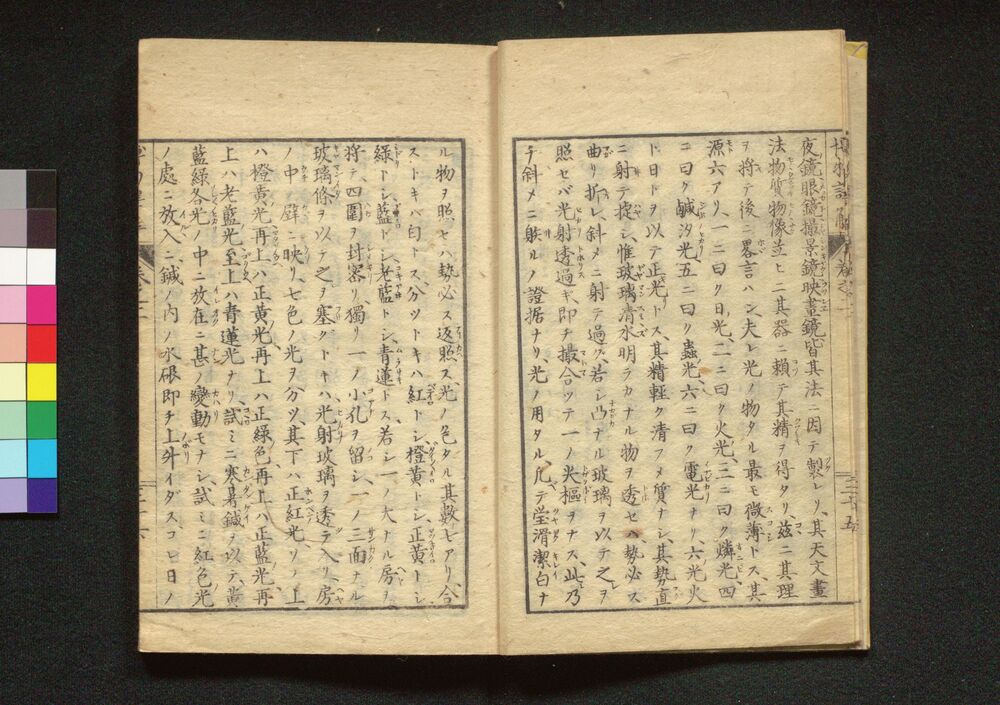 夜鏡眼鏡撮景鏡映畫鏡皆其法ニ因テ製レリ、其天文畫
法物質物像並ヒニ其器ニ頼テ其精ヲ得タリ、茲ニ其理
ヲ将テ後ニ畧言ハン夫レ光ノ物タル最モ微薄トス、其
源六アリ、一ニ曰ク日光、二ニ曰ク火光、三ニ曰ク燐光四
ニ曰ク鹹汐光五ニ曰ク蟲光六ニ曰ク電光ナリ、六ノ光火
ト日トヲ以テ正光トス、其精軽ク清フメ質ナシ、其勢直
ニ射テ捷シ、惟玻璃清水明ラカナル物ヲ透セハ勢必ス
曲リ折レ、斜メニ射テ過ク、若シ凸ナル玻璃ヲ以テ之ヲ
照セバ光射透過キ、即チ撮合ツテ一ノ尖樞ヲナス、此乃
チ斜メニ躲ルノ證据ナリ、光ノ用タル凡テ瑩滑潔白ナ
ル物ヲ照セハ勢必ス返照ス、光ノ色タル其數七アリ、合
ストキハ白トス、分ツトキハ紅トシ、橙黄トシ、正黄トシ
緑トシ、藍トシ、老藍トシ、青蓮トス、若シ一ノ大ナル房ヲ
将テ、四圍ヲ封密リ獨リ一ノ小孔ヲ留シ、一ノ三面ナル
玻璃條ヲ以テ之ヲ塞クトキハ光射玻璃ヲ透テ入リ、房
ノ中ノ壁ニ映リ、七色ノ光ヲ分ツ、其下ハ正紅光リノ上
ハ橙黄光再上ハ正黄光、再上ハ正緑色再上ハ正藍光再
上ハ老藍光至上ハ青蓮光ナリ、試ミニ寒暑鍼ヲ以テ、黄
藍緑各光ノ中ニ放在ニ甚ノ變動モナシ、試ミニ紅色光
ノ處ニ放入ニ鍼ノ内ノ水銀即チ上外イダスコヒ日ノ